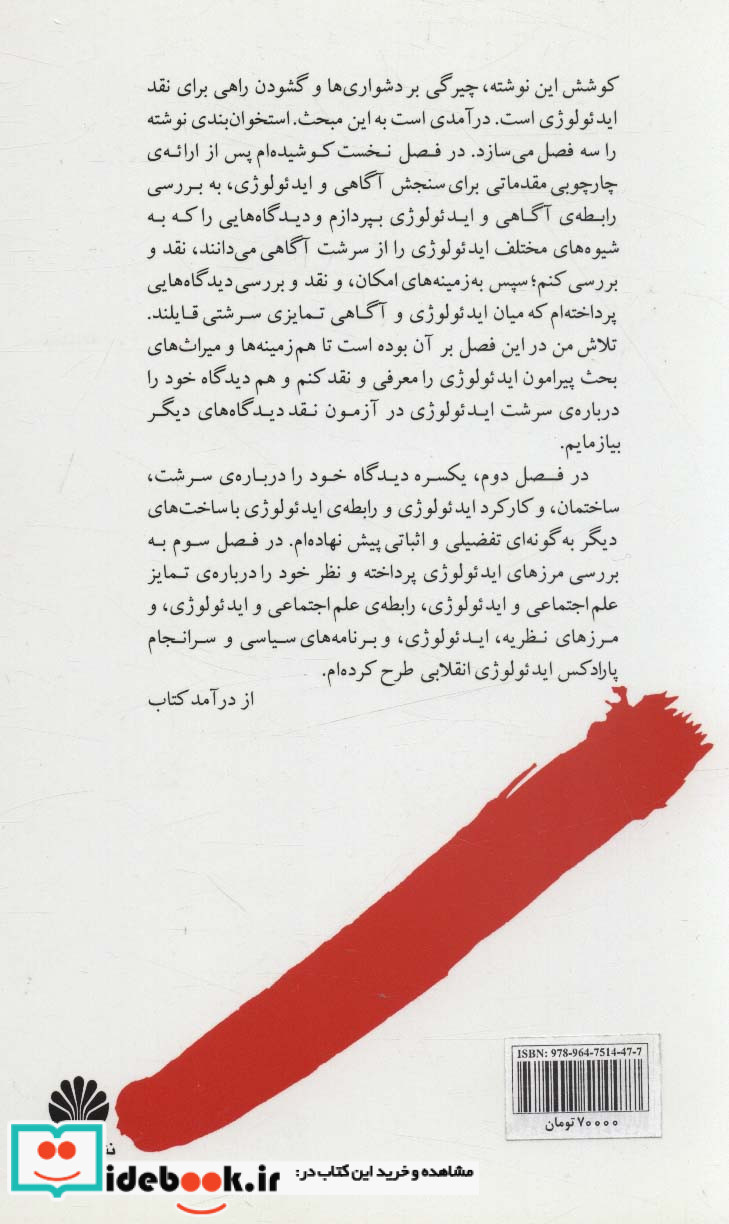 کوشش این نوشته، چیرگی بر دشواری‌ها و گشودن راهی برای نقد
ایدئولوژی است. درآمدی است به این مبحث. استخوان‌بندی نوشته
را سه فصل می‌سازد. در فصل نخست کوشیده‌ام پس از ارائه‌ی
چارچوبی مقدماتی برای سنجش آگاهی و ایدئولوژی، به بررسی
رابطه‌ی آگاهی و ایدئولوژی بپردازم و دیدگاه‌هایی را که به
شیوه‌های مختلف ایدئولوژی را از سرشت آگاهی می‌دانند، نقد و
بررسی کنم؛ سپس به‌زمینه‌های امکان، و نقد و بررسی دیدگاه‌هایی
پرداخته‌ام که میان ایدئولوژی و آگاهی تمایزی سرشتی قایلند.
تلاش من در این فصل بر آن بوده است تا هم‌زمینه‌ها و میراث‌های
بحث پیرامون ایدئولوژی را معرفی و نقد کنم و هم دیدگاه خود را
درباره‌ی سرشت ایدئولوژی در آزمون نقد دیدگاه‌های دیگر
بیازمایم.
در فصل دوم، یکسره دیدگاه خود را درباره‌ی سرشت،
ساختمان، و کارکرد ایدئولوژی و رابطه‌ی ایدئولوژی با ساخت‌های
دیگر به‌گونه‌ای تفضیلی و اثباتی پیش نهاده‌ام. در فصل سوم به
بررسی مرزهای ایدئولوژی پرداخته و نظر خود را درباره‌ی تمایز
علم اجتماعی و ایدئولوژی، رابطه‌ی علم اجتماعی و ایدئولوژی، و
مرزهای نظریه، ایدئولوژی، و برنامه‌های سیاسی و سرانجام
پارادکس ایدئولوژی انقلابی طرح کرده‌ام.
از درآمد کتاب
ISBN: 978-964-7514-47-7
۷۰۰۰۰ تومان
مشاهده و خرید این کتاب در:
idebook.ir